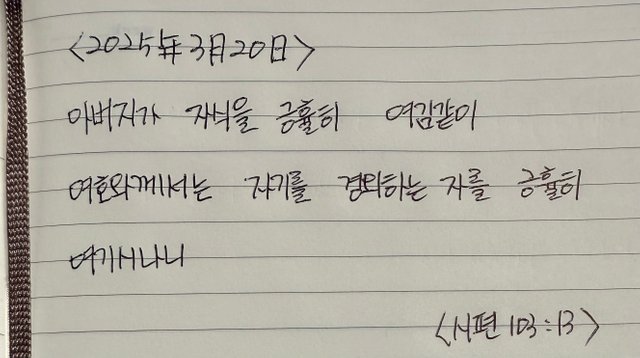 <2025年 3月 20日>
아버지가 자식을 긍휼히 여김같이
여호와께서는 자기를 경외하는 자를 긍휼히
여기시나니
<시편 103:13>